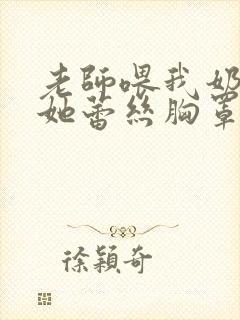 老師喂我奶
她蕾丝胸罩
徐穎奇